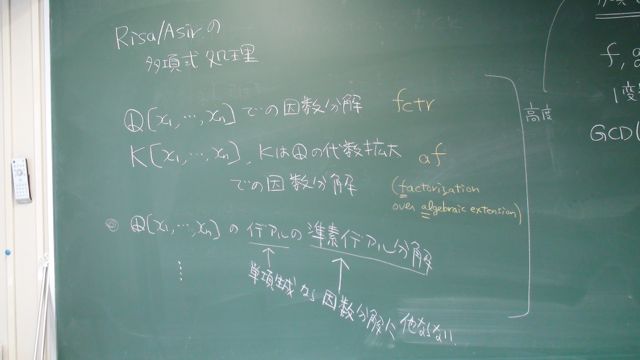 Risa/Asir の
多項式処理
Q[x1, …, xn] での因数分解 fctr
K[x1, …, xn], KはQの代数拡大 af
での因数分解 (factorization
over algebraic extension)
◎ Q[x1, …, xn] の イデアルの 準素イデアル分解
⋮
単項生成なら 因数分解に他ならない
高度
f, g
1変
GCD(